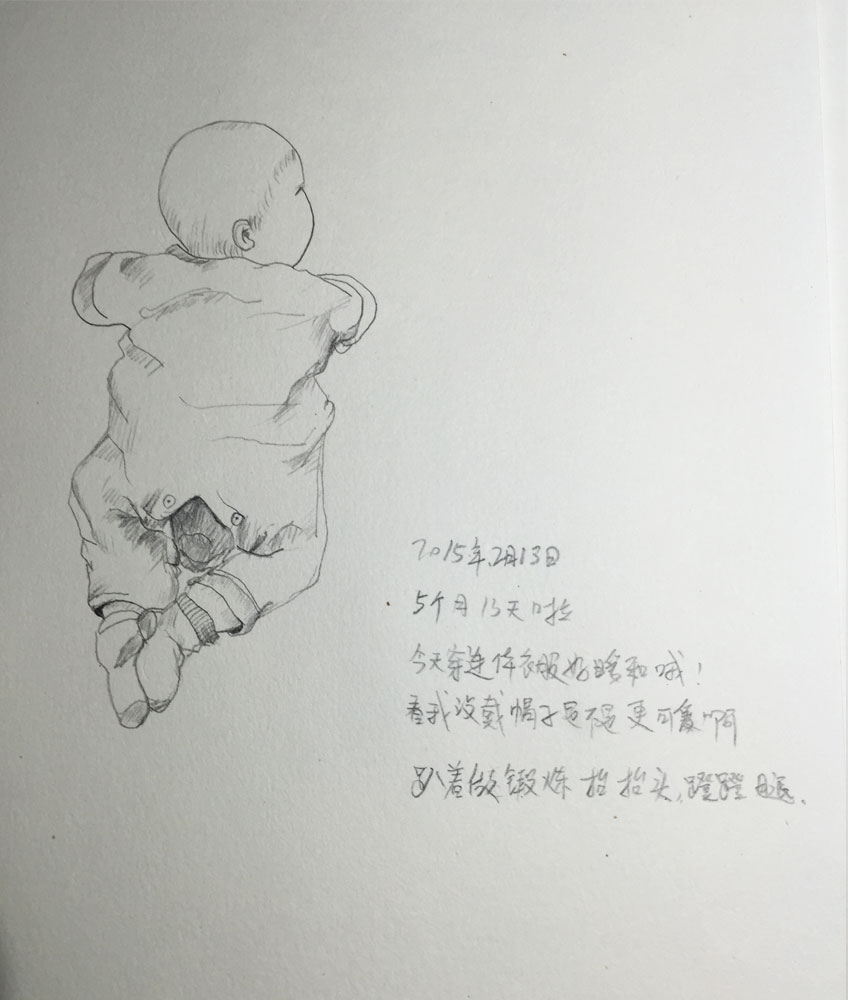 2015年2月13日
5个月13天啦
今天穿连体衣服好暖和哦!
看我没戴帽子是不是更可爱啊
趴着做锻炼 抬抬头,蹬蹬腿.